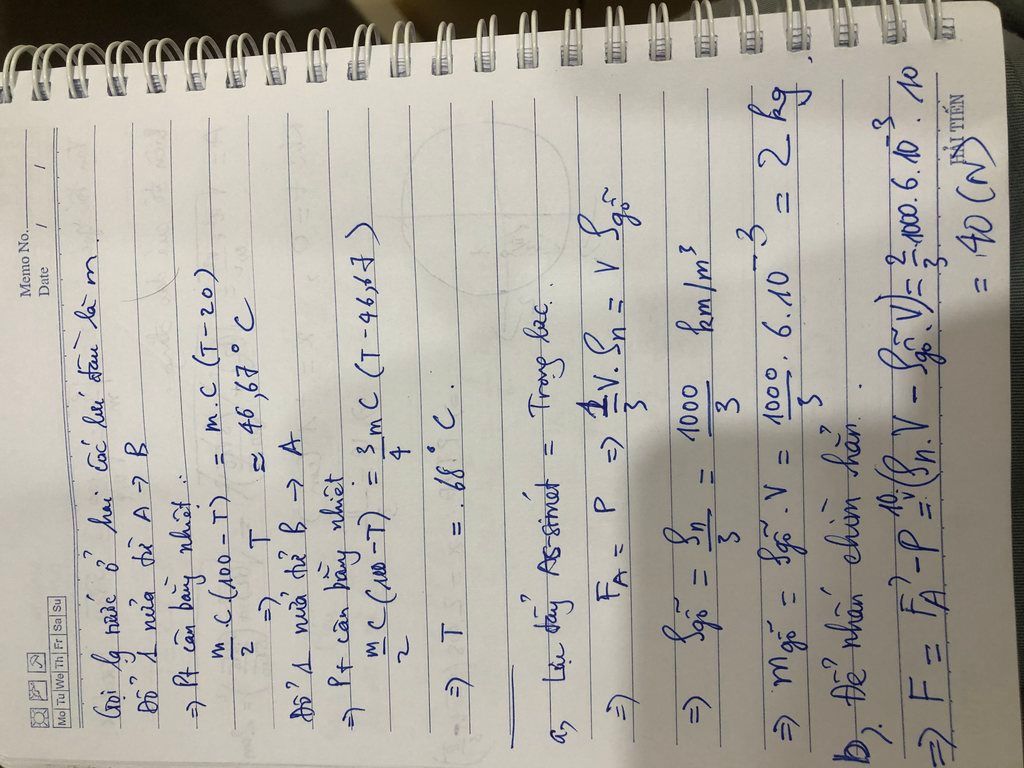 Memo No.
Date / /
Mo Tu We Th Fr Sa Su
Gọi lg nước ở hai cốc lúc đầu là m
Đổ 1 nửa từ A → B
⇒ Pt cân bằng nhiệt :
m/2 C (100 - T) = m.C (T - 20)
⇒ T ≈ 46,67° C
Đổ 1 nửa từ B → A
⇒ Pt cân bằng nhiệt
m/2 C (100 - T) = 3/4 m C (T - 46,67)
⇒ T = 68° C.
a, Lực đẩy Ác-si-mét = Trọng lực.
⇒ F_A = P ⇒ 1/3 V. ρ_n = V ρ_gỗ
⇒ ρ_gỗ = ρ_n/3 = 1000/3 km/m³
⇒ m_gỗ = ρ_gỗ . V = 1000/3 . 6.10⁻³ = 2 kg.
b). Để nhấn chìm hẳn.
⇒ F = F_A' - P = 10(ρ_n.V - ρ_gỗ.V) = 2/3.1000.6.10⁻³.10
= 40 (N)
HẢI TIẾN